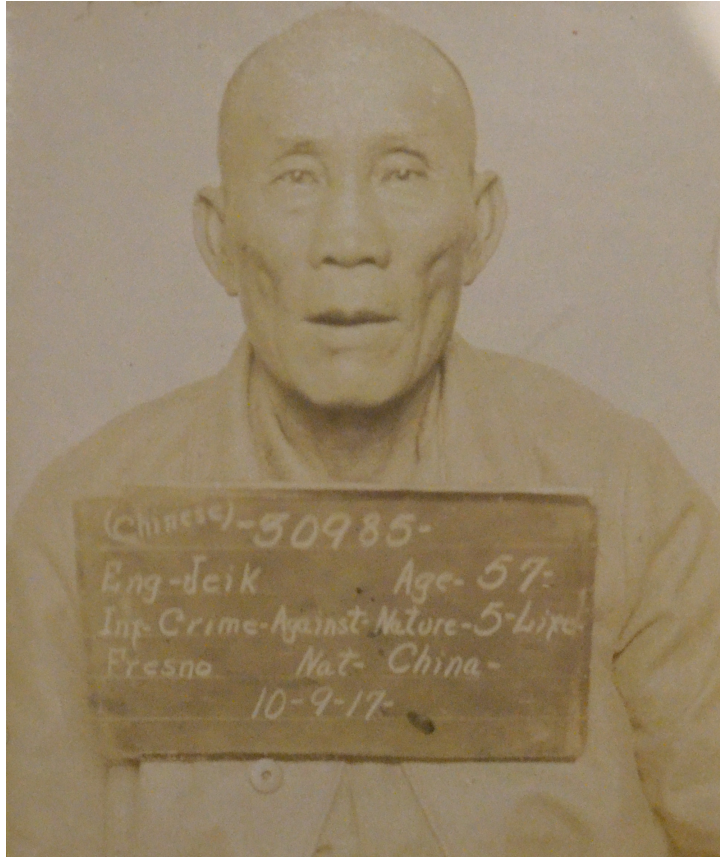 (Chinese)-30985-
Eng-Jeik Age-57-
Inf-Crime-Against-Nature-5-Life-
Fresno Nat-China-
10-9-17-